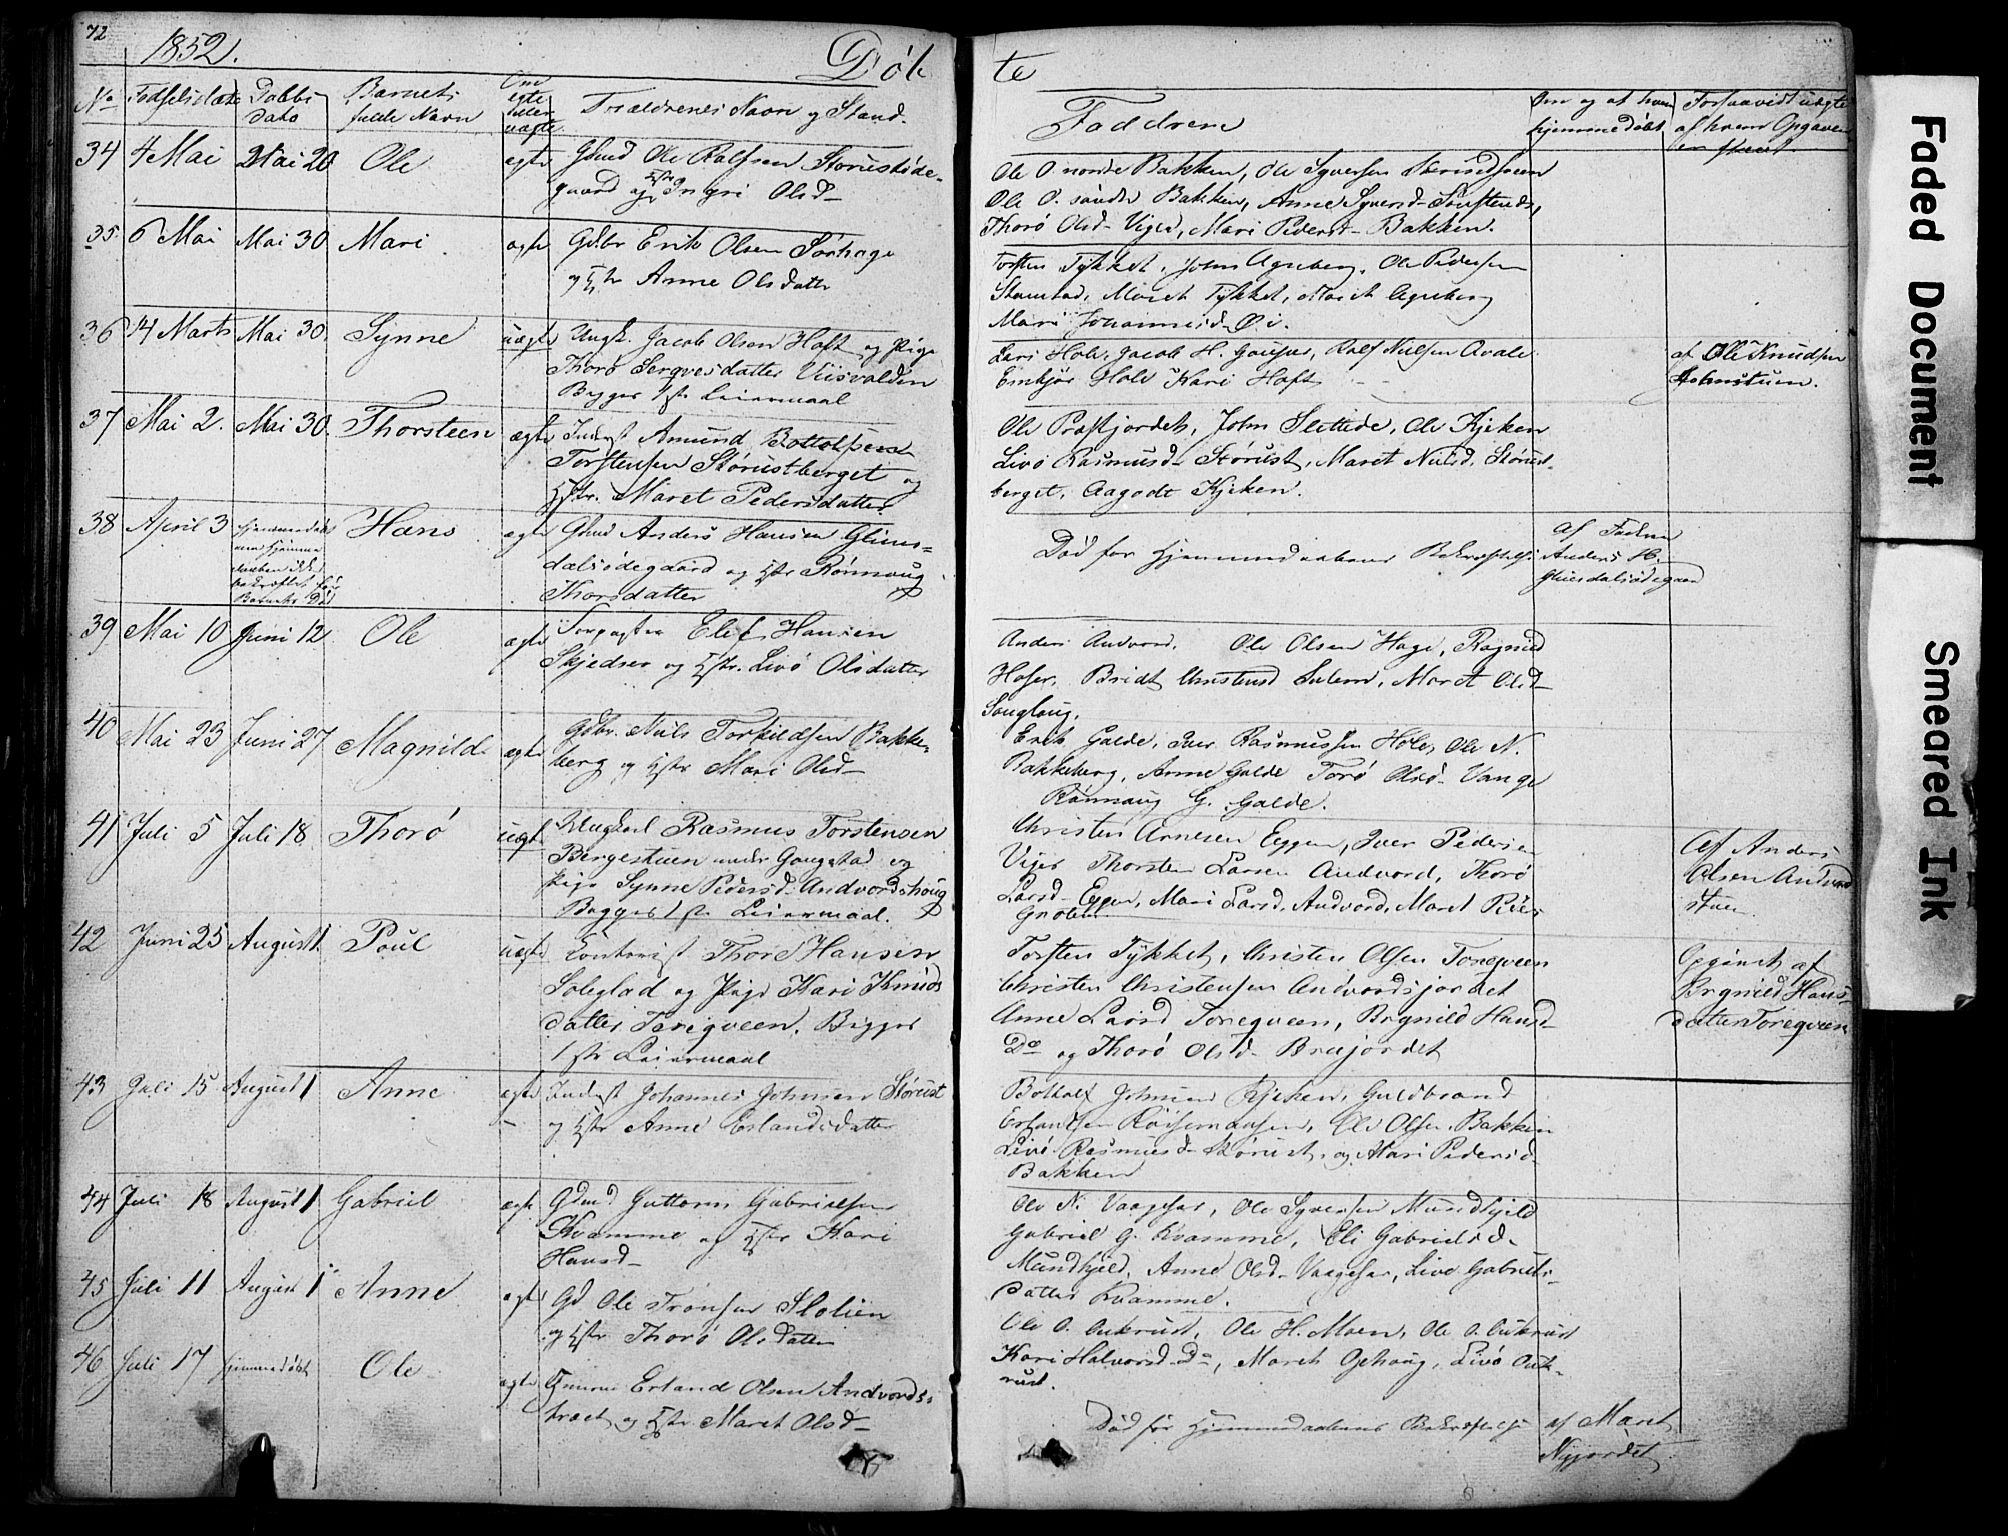 72
1852.
Døb
te
No Fødselsdato Daabs dato Barnets fulde Navn Om ægte eller uægte Forældrenes Navn og Stand.
Faddrene
Om og af hvem hjemmedøbt
Forsaavidt uægte af hvem Opgaven er skeet
34 4 Mai Mai 20 Ole ægte Gdmd Ole Rolfsen Storustøde-
gaard og Hstr Ingri Olsd-
Ole O. nordre Bakken, Ole Syversen
Ole O. søndre Bakken, Anne Syversd-
Thorø Olsd- Viger, Mari Pedersd- Bakken.
35. 6 Mai Mai 30 Mari ægte Gdbr Erik Olsen Sørhage
og Hstr Anne Olsdatter
Torsten Tykket, John Agneberg, Ole Pedersen
Stamstad, Maret Tykket, Maret Agneberg
Mari Johannesd- Øi.
36 14 Marts Mai 30. Synne uægte Ungk. Jacob Olsen Hoft og Pige
Thorø Sergvesdatter Viisvolden
Bygges 1ste Leiermaal
Lars Hole, Jacob H. Rolf Nielsen
Hole Kari Hoft
af Ole Knudsen
Holmstuen.
37 Mai 2. Mai 30. Thorsteen ægte Inderst Amund Bottolfsen
Torstensen Størustberget og
Hstr. Maret Pedersdatter
Ole Præstjordet, John Slettede, Ole Kjeken
Livø Rasmusd- Størust, Maret Nielsd. Størust-
berget, Aagodt Kjeken.
38 April 3 hjemmedøbt
men hjemme
daaben ikke
bekræftet før
Barnets Død
Hans ægte Gdmd Anders Hansen Glims-
dalsødegaard og Hstr Rønnaug
Thorsdatter
Død før Hjemmedaabens Bekræftelse
af Faderen
Anders H.
Glimsdalsødegaard
39 Mai 10 Juni 12. Ole ægte Forpagter Elef Hansen
Skjedser og Hstr. Livø Olsdatter
Anders Andvord. Ole Olsen Hage, Ragnild
Hoser, Bridt Christensd Sulem, Maret Olsd-
40 Mai 23 Juni 27 Magnilde ægte Gdbr. Niels Torkildsen Bakke-
berg og Hstr Mari Olsd-
Erik Galde, Iver Rasmussen Hole, Ole N.
Bakkeberg, Anne Galde Torø Olsd- Vange
Rønnaug G. Galde.
41 Juli 5 Juli 18 Thorø uægte Ungkarl Rasmus Torstensen
Bergestuen under Gougstad og
Pige Synne Pedersd- Andvordshoug
Begges 1ste Leiermaal.
Christen Arnesen Eggen, Iver Pedersen
Viger Thorsten Larsen Andvord, Thorø
Larsd- Eggen, Mari Larsd. Andvord, Maret Peders
Af Anders
Olsen Andvord
stuen
42 Juni 25 August 1 Poul uægte Thor Hansen
Soleglad og Pige Kari Knuds
datter Toregveen, Bigges
1ste Leiermaal
Torsten Tykket, Christen Olsen Toregveen
Christen Christensen Andvordsjordet
Anne Larsd Toregveen, Brynild Hansd-
Do og Thorø Olsd- Brujordet
Opgivet af
Brynild Hans-
datter Toregveen
43 Juli 15 August 1 Anne ægte Inderst Johannes Johnsen Størust
og Hstr Anne Erlandsdatter
Bottolf Johnsen Kjeken, Guldbrand
Erlandsen Ole Olsen Bakken
Livø Rasmusd- Størust, og Mari Pedersd-
Bakken
44 Juli 18 August 1 Gabriel ægte Gdmd Guttorm Gabrielsen
Kvamme og Hstr Kari
Hansd-
Ole N. Vaagesar, Ole Syversen Mundhjeld
Gabriel G. Kvamme, Eli Gabrielsd-
Mundhjeld, Anne Olsd- Vaagesar, Live Gabriels-
datter Kvamme.
45 Juli 11 August 1 Anne ægte Gd Ole Tronsen Slolien
og Hstr Thorø Olsdatter
Ole O. Aukrust, Ole H. Moen, Ole O. Aukrust
Kari Halvorsd- Do, Maret Gehoug, Livø Auk-
rust.
46 Juli 17 hjemmedøbt Ole ægte Erland Olsen Andvords-
træet og Hstr Maret Olsd-
Død før Hjemmedaabens Bekræftelse
af Maret
Nyjordet
Faded Document
Smeared Ink